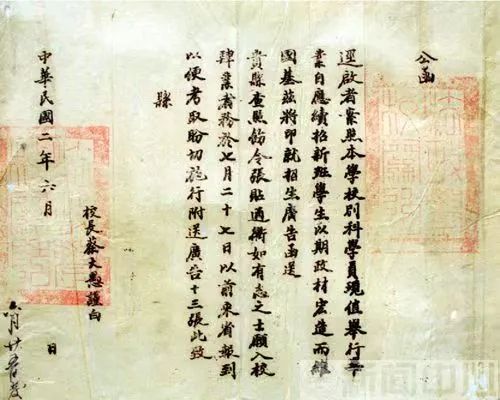 公函
逕啟者案照本學校別科學員現值舉行畢
業自應續招新班學生以期政材宏造而維
國基茲將印就招生廣告函送
貴縣查照飭令張貼通衢如有志之士願入校
肄業者務於七月二十七日以前來省報到
以便考取盼切施行附送廣告十三張此致
縣
校長蔡文愚謹白
中華民國二年六月 日
六月廿